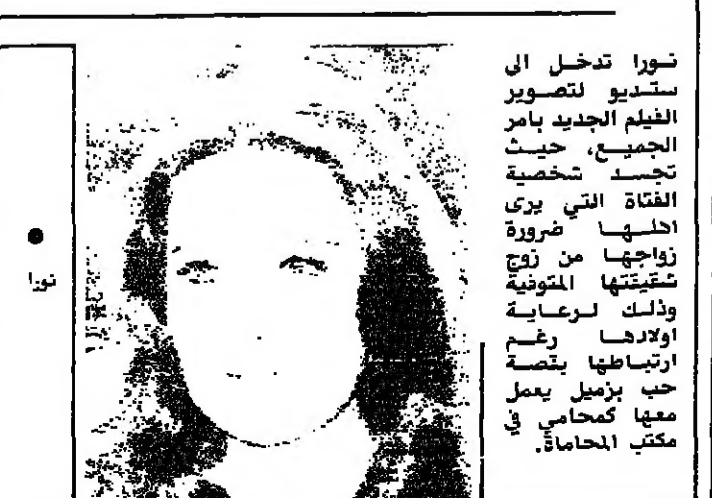 نورا تدخل الى
ستديو لتصوير
الفيلم الجديد بامر
الجميع، حيث
تجسد شخصية
الفتاة التي يرى
اهلها ضرورة
زواجها من زوج
شقيقتها المتوفية
وذلك لرعاية
اولادها رغم
ارتباطها بقصة
حب بزميل يعمل
معها كمحامي في
مكتب المحاماة.
نورا